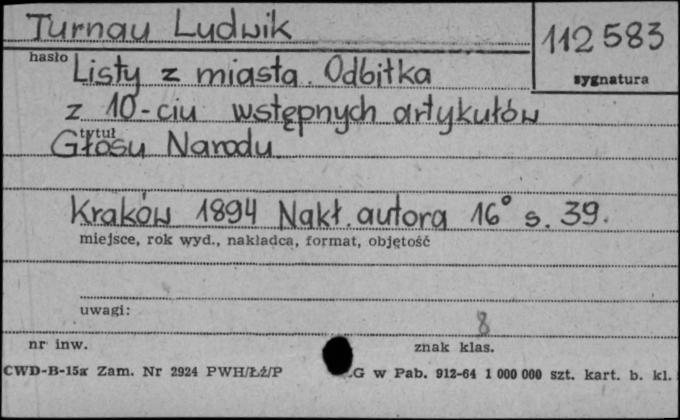 Turnau Ludwik
112583
hasło
Listy z miasta. Odbitka
sygnatura
z 10-ciu wstępnych artykułów
tytuł
Głosu Narodu
Kraków 1894 Nakł. autora 16° s. 39.
miejsce, rok wyd., nakładca, format, objętość
uwagi:
8
nr inw.
znak klas.
CWD-B-15a Zam. Nr 2924 PWH/Łź/P
G w Pab. 912-64 1 000 000 szt. kart. b. kl.